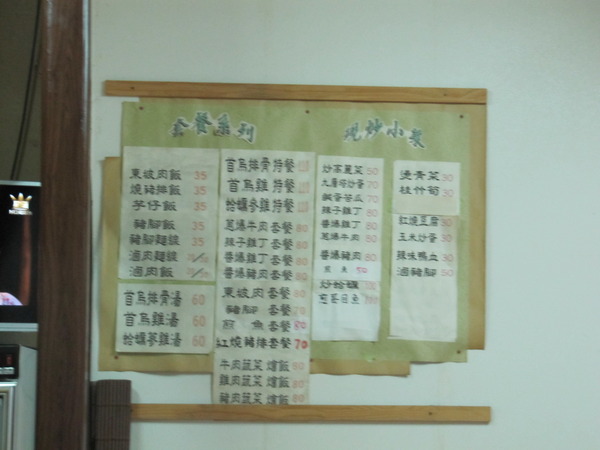 套餐系列
現炒小菜
東坡肉飯 35
燒豬排飯 35
芋仔飯 35
豬腳飯 35
豬腳麵線 35
滷肉麵線
滷肉飯
首烏排骨湯 60
首烏雞湯 60
蛤蠣蔘雞湯 60
首烏排骨特餐
首烏雞特餐
蛤蠣蔘雞特餐
蔥爆牛肉套餐 80
辣子雞丁套餐 80
醬爆雞丁套餐 80
醬爆豬肉套餐 80
東坡肉套餐 80
豬腳套餐 70
煎魚套餐 80
紅燒豬排套餐 70
牛肉蔬菜燴飯 80
雞肉蔬菜燴飯 80
豬肉蔬菜燴飯 80
炒高麗菜 50
九層塔炒蛋 70
鹹蛋苦瓜 70
辣子雞丁 80
醬爆雞丁 80
蔥爆牛肉 80
醬爆豬肉 80
煎魚 50
炒蛤蠣 100
燙青菜 30
桂竹筍 30
紅燒豆腐 30
玉米炒蛋 30
辣味鴨血 30
滷豬腳 50